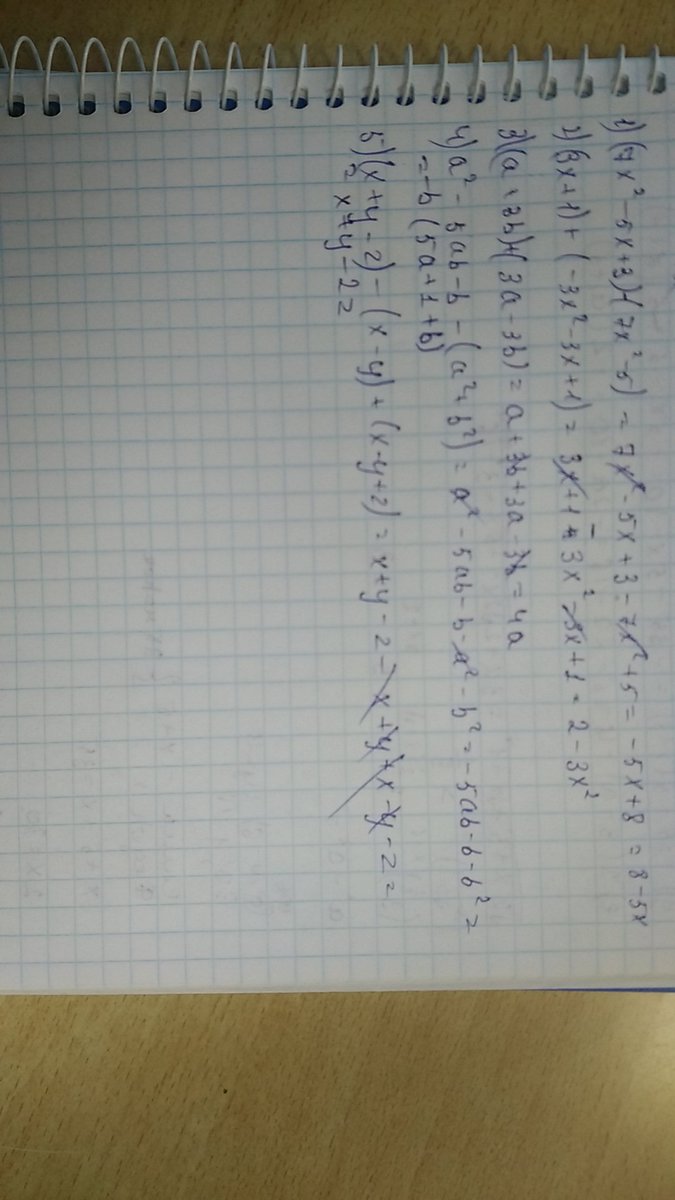 1) (7x² - 5x + 3) - (7x² - 5) = 7x² - 5x + 3 - 7x² + 5 = -5x + 8 = 8 - 5x
2) (3x + 1) + (-3x² - 3x + 1) = 3x + 1 - 3x² - 3x + 1 = 2 - 3x²
3) (a + 3b) + (3a - 3b) = a + 3b + 3a - 3b = 4a
4) a² - 5ab - b - (a² + b²) = a² - 5ab - b - a² - b² = -5ab - b - b² =
= -b (5a + 1 + b)
5) (x + y - z) - (x - y) + (x - y + z) = x + y - z - x + y + x - y - z =
= x + y - 2z